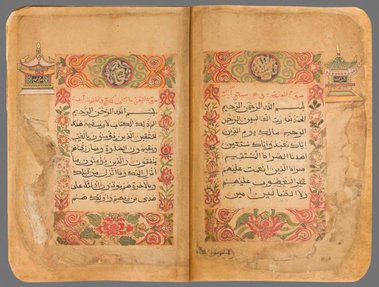 بسم الله الرحمن الرحيم
الحمد لله رب العالمين الرحمن
الرحيم مالك يوم الدين
اياك نعبد واياك نستعين
اهدنا الصراط المستقيم
صراط الذين انعمت عليهم
غير المغضوب عليهم
ولا الضالين امين
بسم الله الرحمن الرحيم
الم ذلك الكتاب لا ريب فيه هدى
للمتقين الذين يؤمنون بالغيب
ويقيمون الصلوة ومما رزقناهم
ينفقون والذين يؤمنون بما
انزل اليك وما انزل من قبلك
وبالاخرة هم يوقنون اولئك على
هدى من ربهم واولئك هم